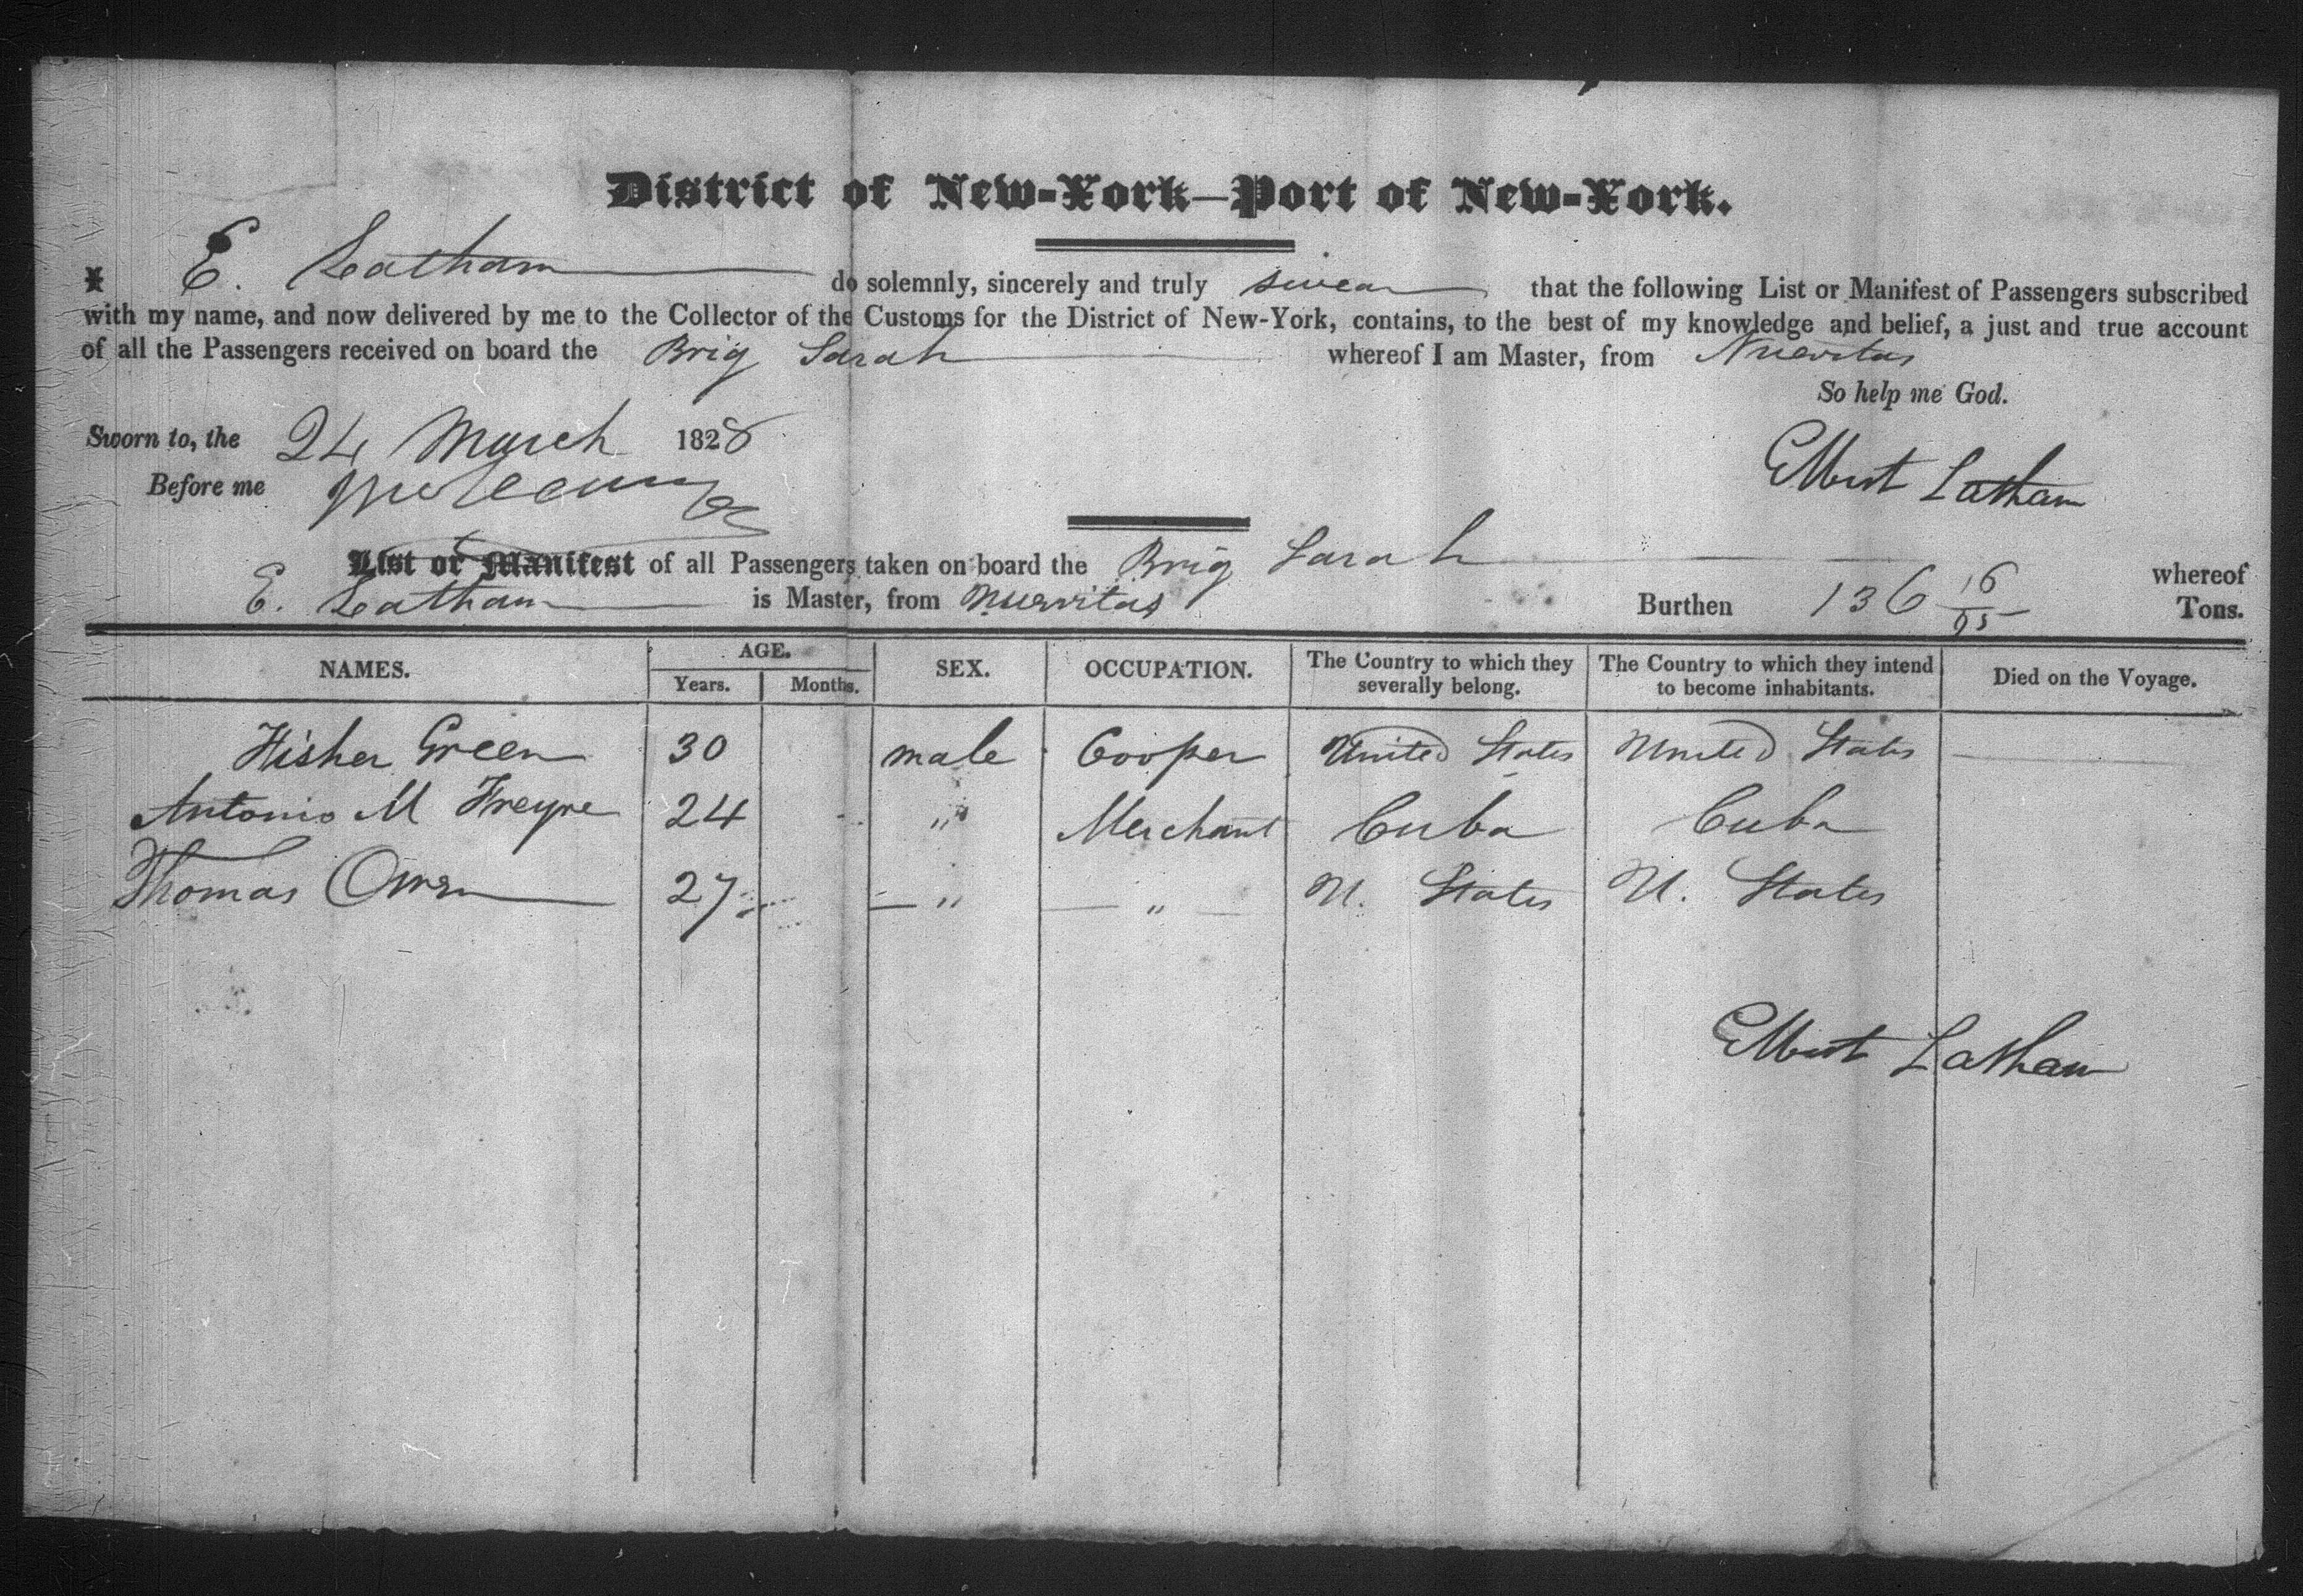 District of New-York—Port of New-York.
I E. Latham do solemnly, sincerely and truly swear that the following List or Manifest of Passengers subscribed
with my name, and now delivered by me to the Collector of the Customs for the District of New-York, contains, to the best of my knowledge and belief, a just and true account
of all the Passengers received on board the Brig Sarah whereof I am Master, from Nuevitas
So help me God.
Sworn to, the 24 March 1828
Elbert Latham
Before me
List or Manifest of all Passengers taken on board the Brig Sarah whereof
E. Latham is Master, from Nuevitas Burthen 136 16/95 Tons.
NAMES. AGE. SEX. OCCUPATION. The Country to which they severally belong. The Country to which they intend to become inhabitants. Died on the Voyage.
Years. Months.
Fisher Green 30 male Cooper United States United States
Antonio M Freyre 24 " Merchant Cuba Cuba
Thomas Owen 27 " " U. States U. States
Elbert Latham